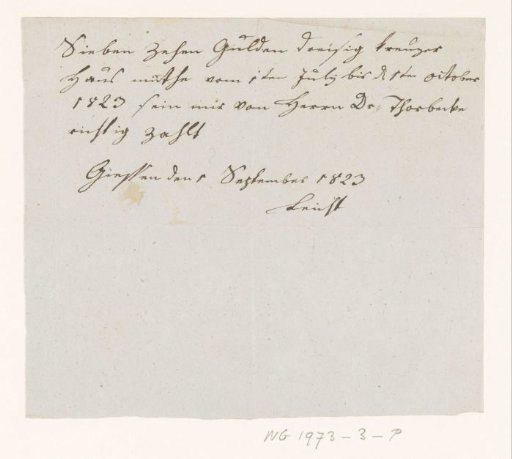 Sieben zehen Gulden dreisig kreuzer
Haus miethe vom 1ten July bis d 1ten october
1823 sein mir von Herrn Dr. Thorbecke
richtig zahlt
Giessen den 1 September 1823
Leicht
NG 1973-3-P